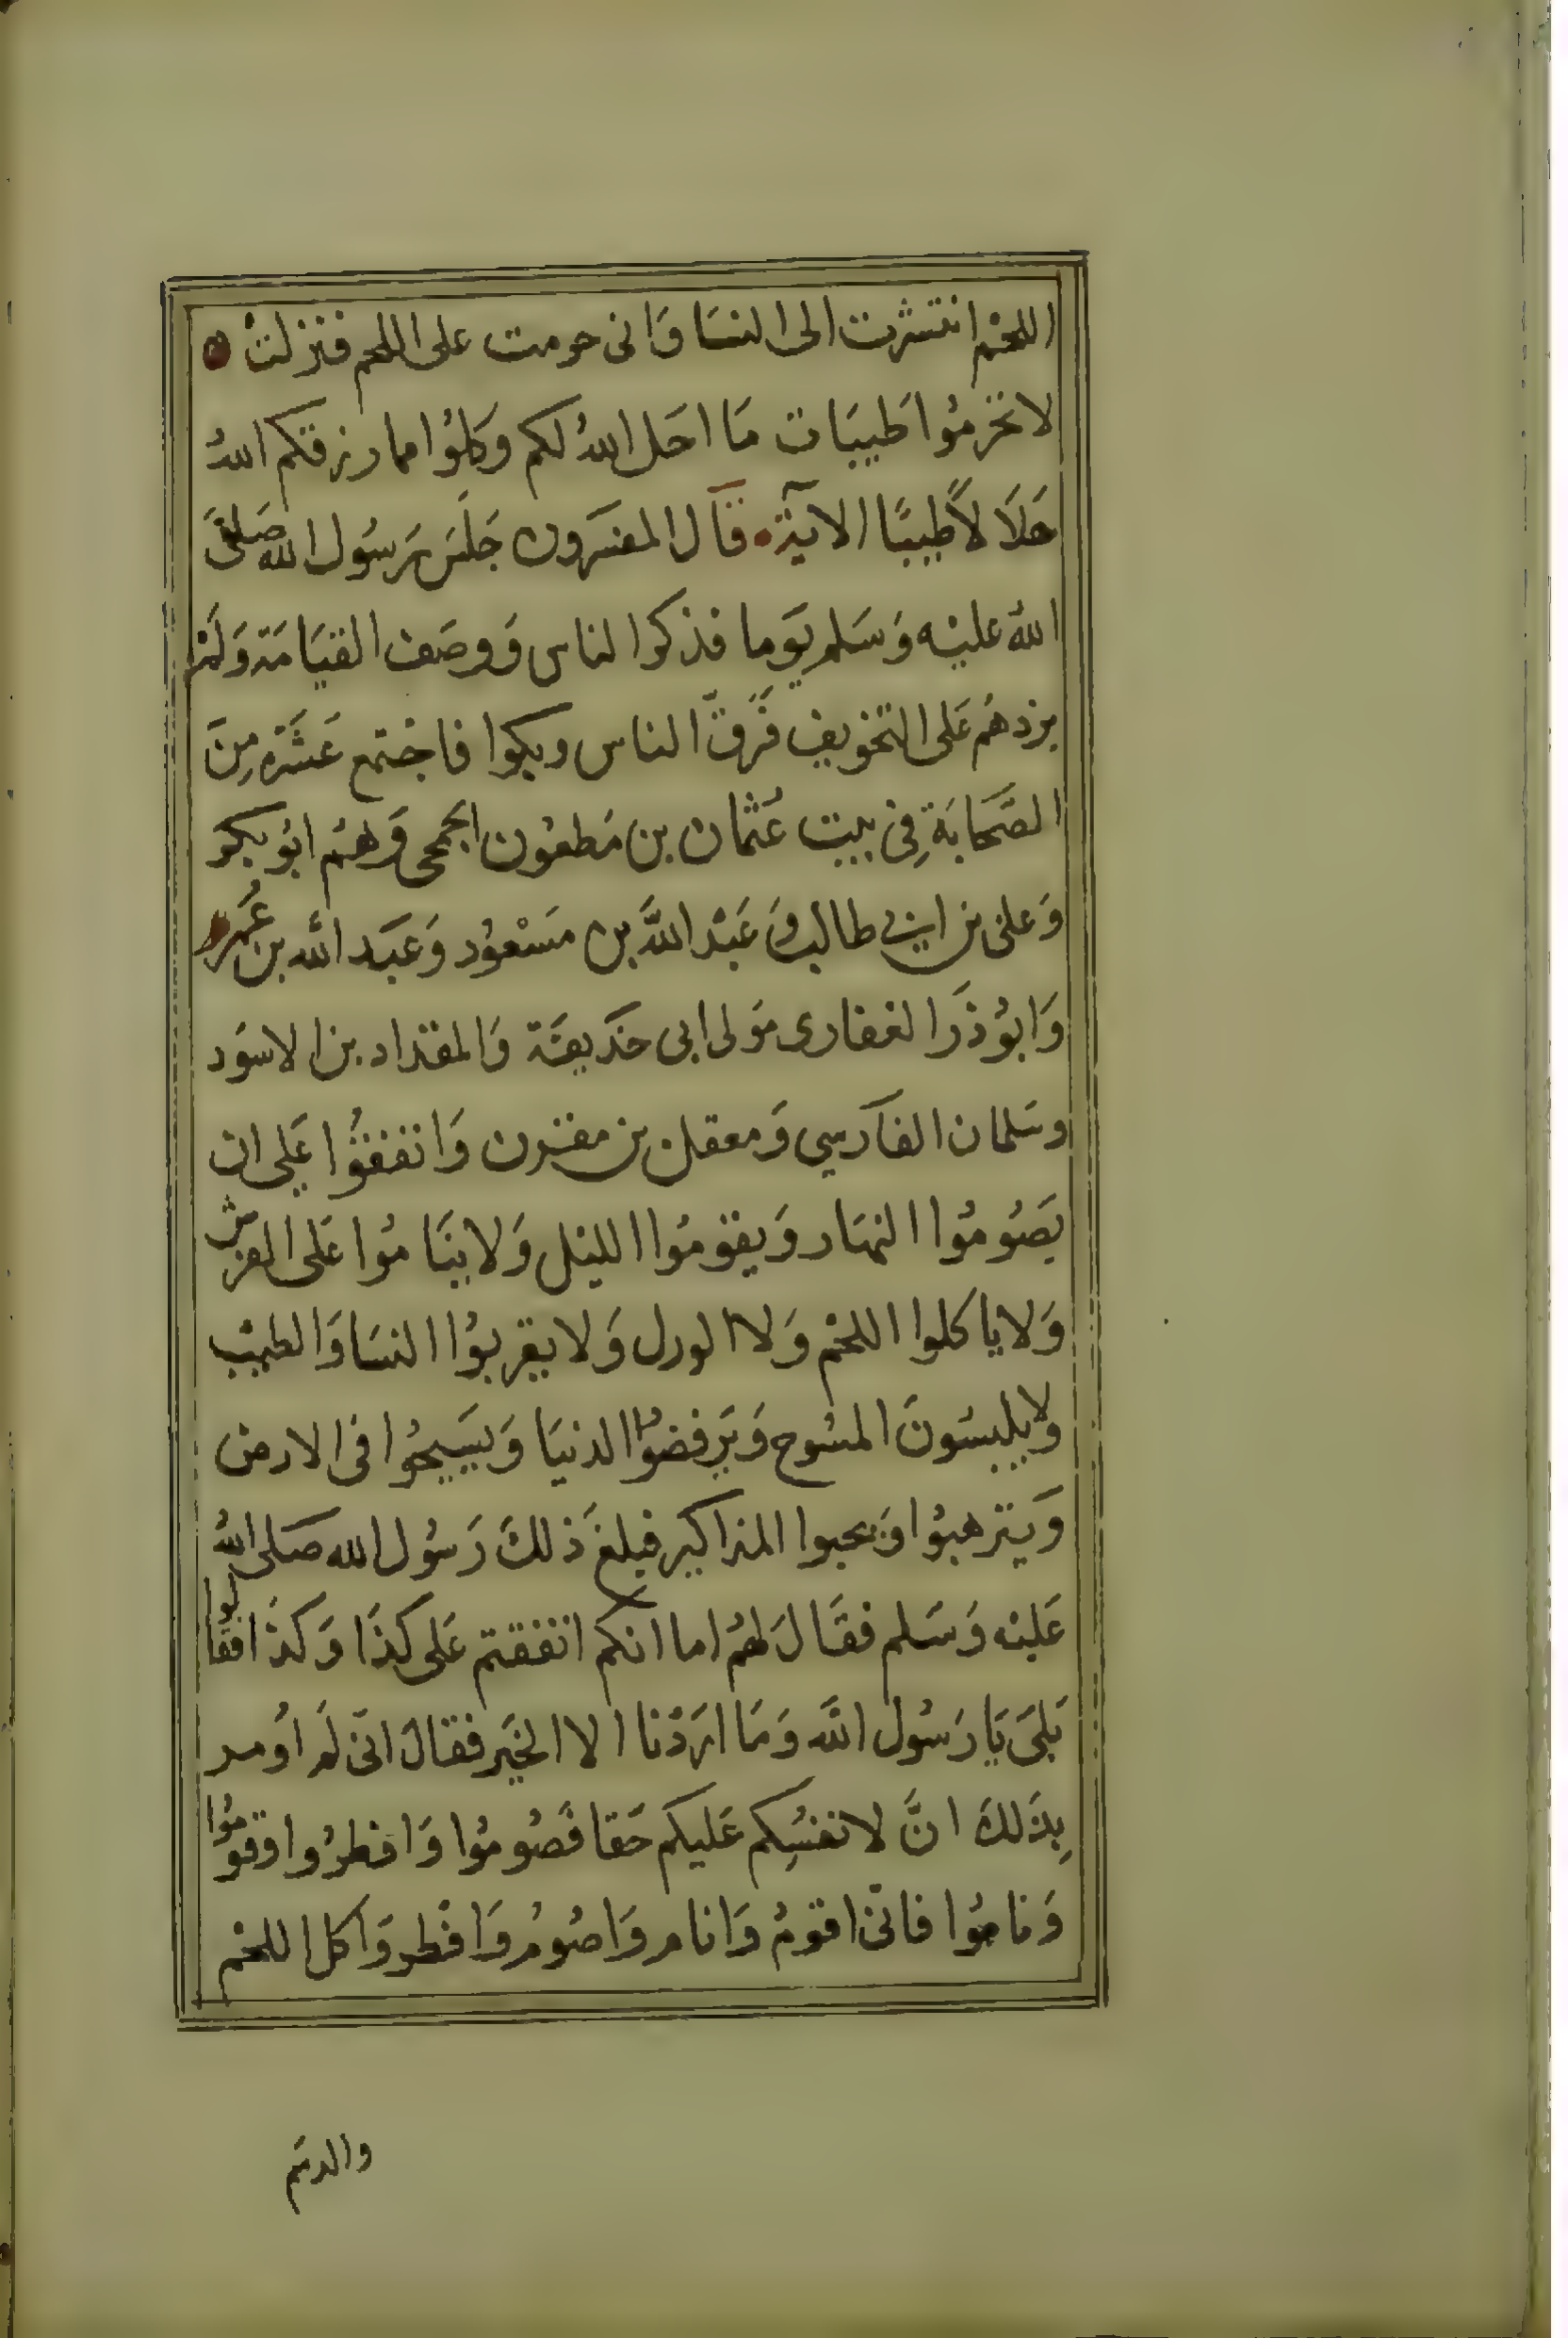 اللحم انتشرت الى النسا وَانى حرمت على اللحم فنزلت
لا تحرمُوا طَيبَات مَا احَل اللهُ لكم وَكلوُا مما رزقكم اللهُ
حَلاَ لاً طَيبًا الايَة قَال المفسَرون جَلَسَ رَسُول الله صَلى
اللهُ عليْه وَسَلم يوَما فذكر الناس وَوصَف القيَامَة وَلمْ
يزدهُم عَلى التخويف فَرقَّ الناس وبكوا فاجْتمع عَشَرة مِنَ
الصَّحَابَة فِى بيت عُثمان بن مَظعُون الجمحى وَهمُ ابوُ بكر
وَعلى بن ابى طالب وَعَبْد اللَّه بن مَسْعوُد وَعَبَد الله بن عُمر
وَابوُ ذَر الغفارى مَولى ابى حَذيفَة وَالمقداد بن الاسوَد
وسَلمان الفاَرسي وَمعقل بن مقرن وَاتفقوُا عَلى ان
يَصُومُوا النهَار وَيقومُوا الليْل وَلا ينَامُوا عَلى الفرش
وَلا ياكلوا اللحْم وَلا الورل وَلا يقربوُا النسَا وَالطيْب
ولا يلبسُونَ المسُوح وَيَرفضوُا الدنيَا وَيَسيحُوا فى الارض
وَيترهبوُا وَيجبوا المذاكير فبلغ ذَلكَ رَسُول الله صَلى اللهُ
عَليْه وَسَلم فقَالَ لهُم اما انكم اتفقتم عَلى كذَا وَكذَا فقالوا
بَلىَ يَا رَسُول اللَّه وَمَا ارَدْنا الا الخيَر فقالَ انّى لمَ اوُمر
بِذَلكَ انَّ لانفسُِكم عَليكم حَقا فصُومُوا وَافطرُوا وقومُوا
وَنامُوا فانّى اقومُ وَانام وَاصُومُ وَافْطر وَاكل اللحْم
والدسَم